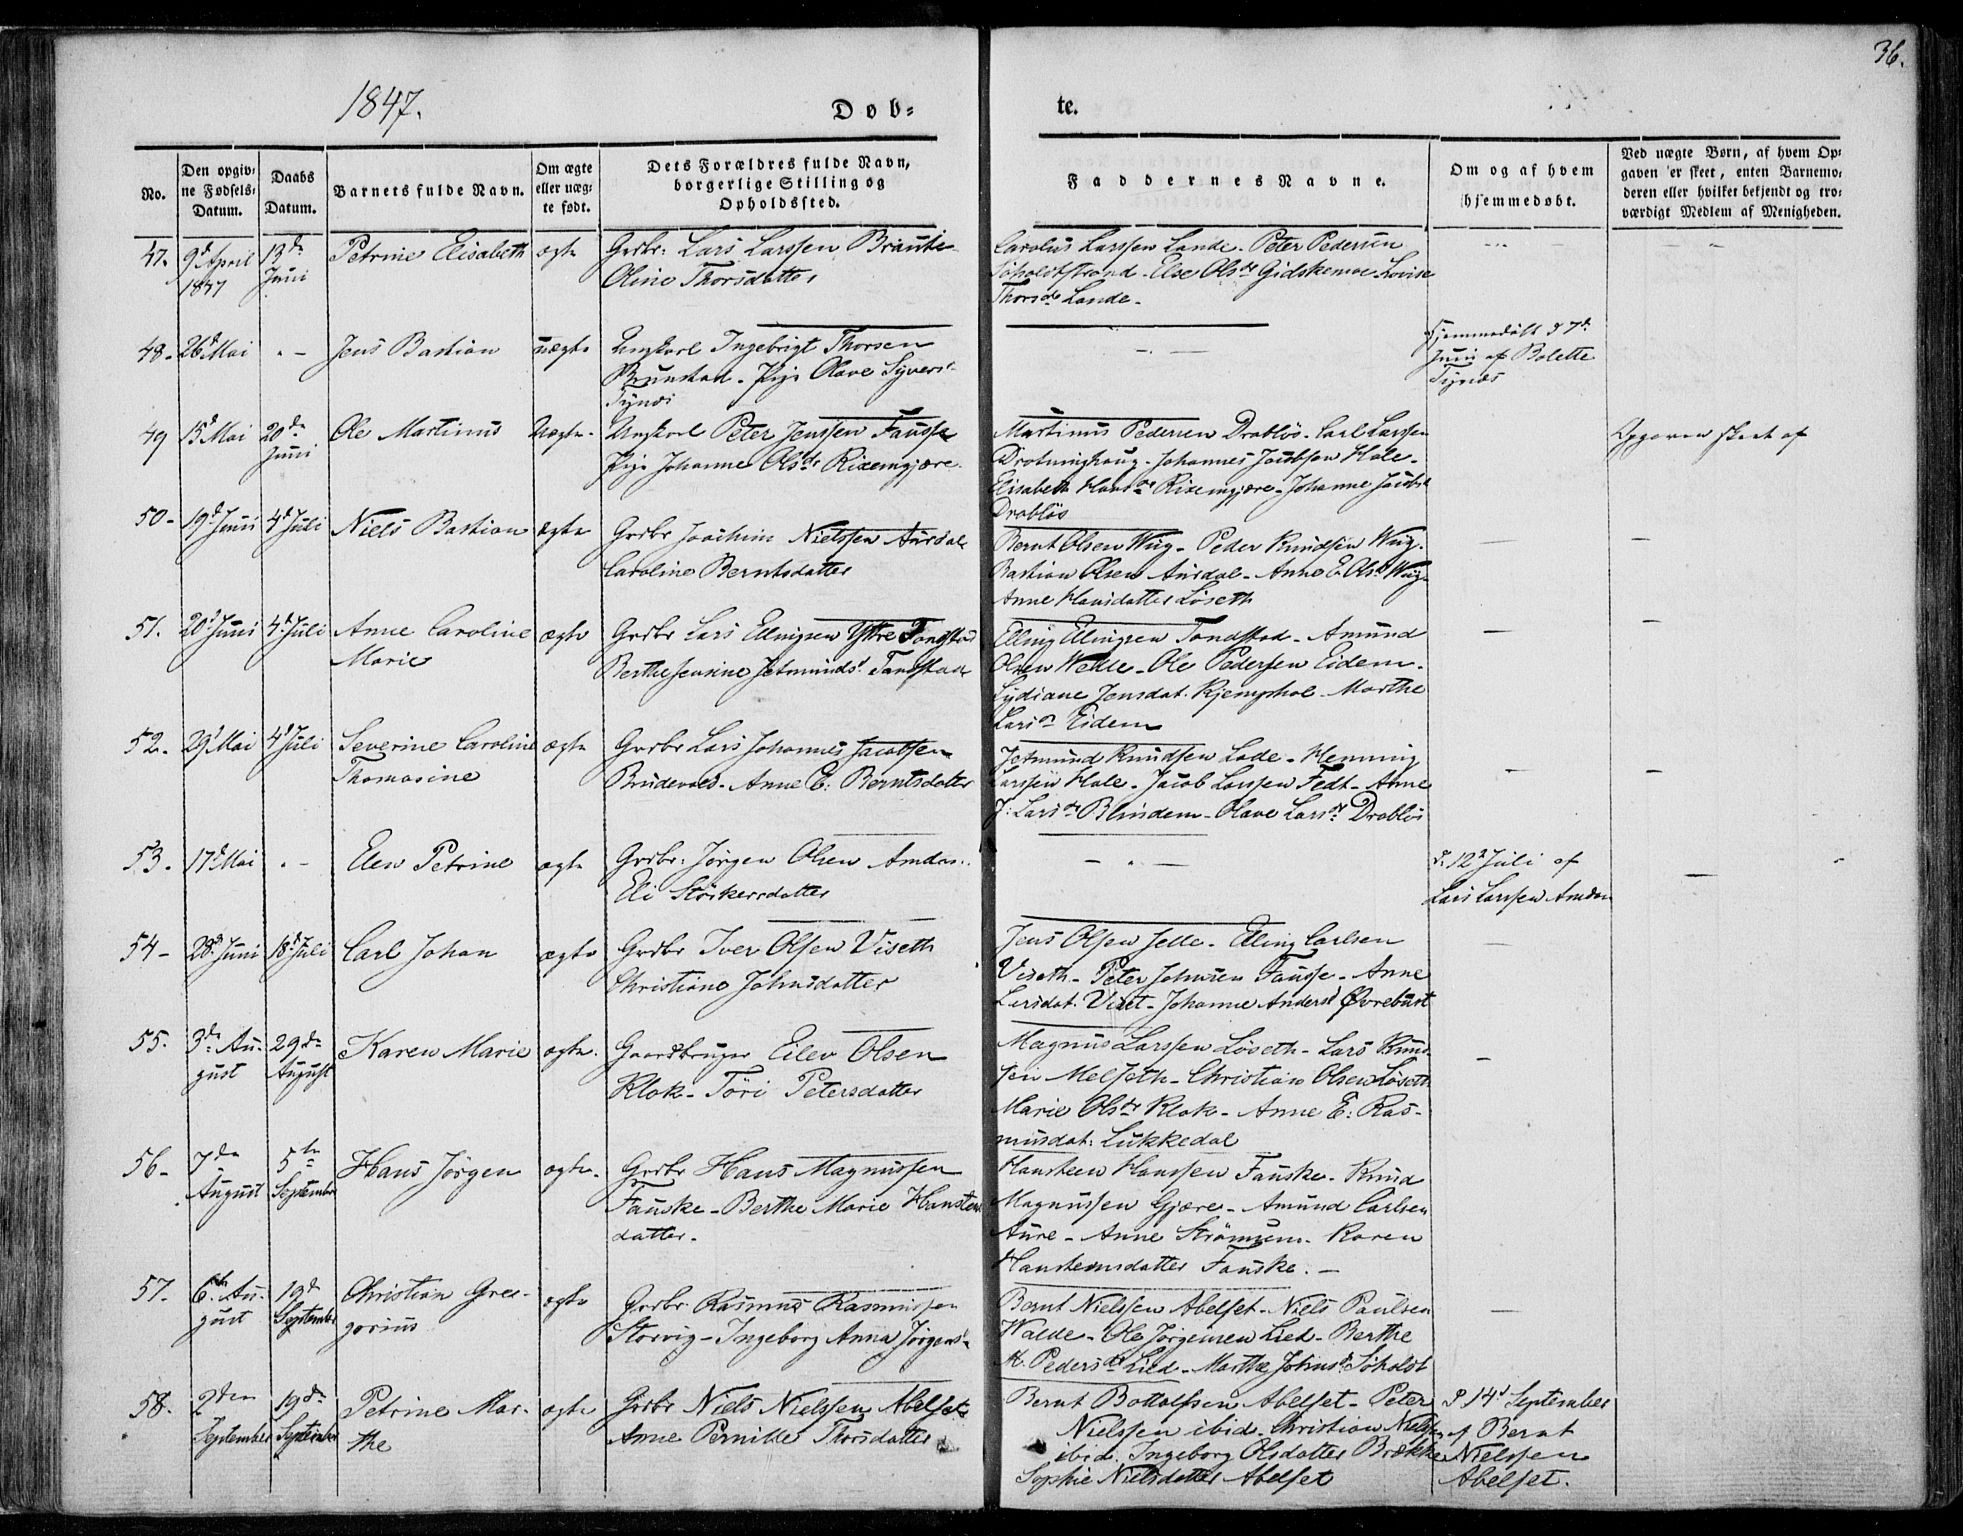 36.
1847.
Døb-
te.
No.
Den opgiv-
ne Fødsels-
Datum.
Daabs
Datum.
Barnets fulde Navn.
Om ægte
eller uæg-
te født.
Dets Forældres fulde Navn,
borgerlige Stilling og
Opholdssted.
Faddernes Navne.
Om og af hvem
hjemmedøbt.
Ved uægte Børn, af hvem Op-
gaven er skeet, enten Barnemo-
deren eller hvilket bekjendt og tro-
værdigt Medlem af Menigheden.
47. 9d April 13de Petrine Elisabeth ægte Grdbr: Lars Larssen
1847 Juni Oline Thorsdatter
Carolus Larssen Lande. Peter Pedersen
Søholdtstrand. Else Olsdr Gidskemoe. Lovise
Thorsdr Lande.
48. 26d Mai Jens Bastian uægte Ungkarl Ingebrigt Thorsen
Brunstad. Pige Olave Syvers
Tynæs
Hjemmedøbt d 7de
Juni af Bolette
Tynæs
49 15d Mai 20de Ole Martinus Uægte. Ungkarl Peter Jenssen Fauske
Juni Pige Johanne Olsdr Rixemgjære.
Martinus Pedersen Drabløs. Carl Larssen
Drotninghaug. Johannes Jacobsen Hole.
Elisabeth Hansdr Rixemgjære. Johanne Jacobsd
Drabløs
Opgaven skeet af
50 19d Juni 4d Juli Niels Bastian ægte Grdbr Joachim Nielssen Aursdal
Caroline Berntsdatter
Bernt Olsen Wiig. Peder Knudsen Wiig.
Bastian Olsen Aursdal. Anne E. Olsd Wiig
Anne Hansdatter Løseth
51. 20d Juni 4d Juli Anne Caroline ægte Grdbr Lars Ellingsen Ytre Tandstad
Marie Berthe Jensine Jetmundsd. Tandstad
Elling Ellingsen Tandstad. Amund
Olsen Welle. Ole Pedersen Eidem.
Lydiane Jensdat. Kjemphol. Marthe
Larsdr Eidem
52. 29d Mai 4d Juli Severine Caroline ægte Grdbr Lars Johannes Jacobsen
Thomasine Brudevold. Anne E: Berntsdatter
Jetmund Knudsen Lade. Henning
Larssen Hole. Jacob Larssen Fedt. Anne
J: Larsdr Blindem. Olave Larsdr Drabløs
53. 17d Mai Elen Petrine ægte Grdbr: Jørgen Olsen Amdam.
Eli Størkersdatter
d. 12t Juli af
Lars Larssen Amdam
54 28d Juni 18d Juli Carl Johan ægte Grdbr Iver Olsen Viseth
Christiane Johnsdatter
Jens Olsen Jelle. Elling Carlsen
Viseth. Peter Johnsen Fauske. Anne
Larsdat. Viset. Johanne Andersd Øvrebust
55. 3de Au- 29de Karen Marie ægte. Gaardbruger Eilev Olsen
gust August Klok. Tøri Petersdatter
Magnus Larssen Løseth. Lars Knud-
sen Melseth. Christian Olsen Løseth
Marie Olsdr Klok. Anne E: Ras-
musdat: Lukkedal
56 7de 5te Hans Jørgen ægte. Grdbr Hans Magnussen
August September Fauske. Berthe Marie Hansteen
datter.
Hansteen Hanssen Fauske. Knud
Magnussen Gjære. Amund Carlsen
Aure. Anne Strømmen. Karen
Hansteensdatter Fauske.
57. 6te Au- 19d Christian Gre- ægte Grdbr. Rasmus Rasmussen
gust September gorius Storvig. Ingeborg Anna Jørgensd
Bernt Nielssen Abelset. Niels Paulsen
Walde. Ole Jørgensen Lied. Berthe
M. Pedersdr Lied. Marthe Johnsd Søholdt
58. 2den 19de Petrine Mar- ægte Grdbr Niels Nielssen Abelset
September September the Anne Pernille Thorsdatter
Bernt Bottolfsen Abelset. Peter
Nielssen ibid. Christian Nielssen
ibid. Ingeborg Olsdatter Brække
Sophie Nielsdatter Abelset
d 14d September
af Bernt
Nielssen
Abelset.